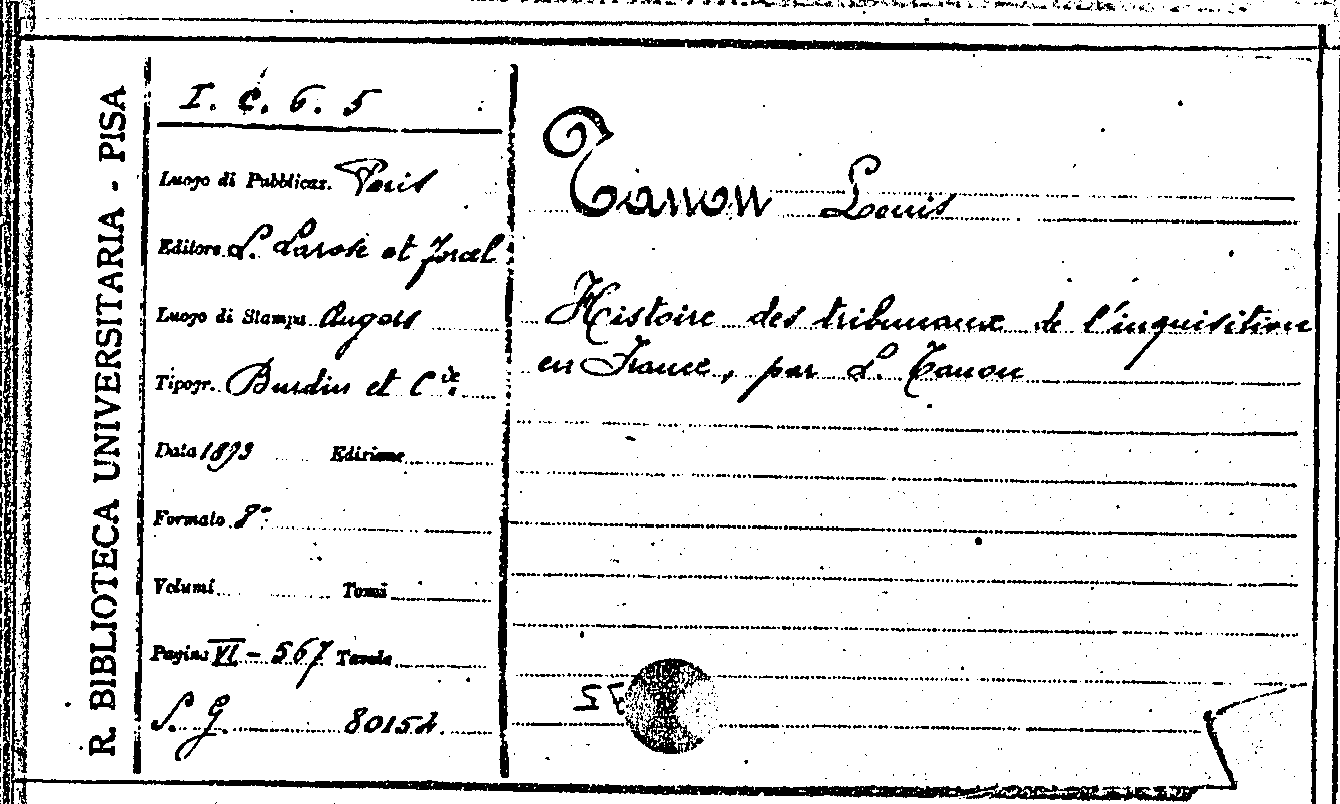 R. BIBLIOTECA UNIVERSITARIA - PISA
I. C. 6. 5
Luogo di Pubblicaz. Paris
Editore L. Larose et Forcel
Luogo di Stampa Angers
Tipogr. Burdin et Cie
Data 1893 Edizione
Formato 8°
Volumi Tomi
Pagine VI - 567 Tavole
S. G. 80152
Tanon Louis
Histoire des tribunaux de l'inquisition
en France, par L. Tanon